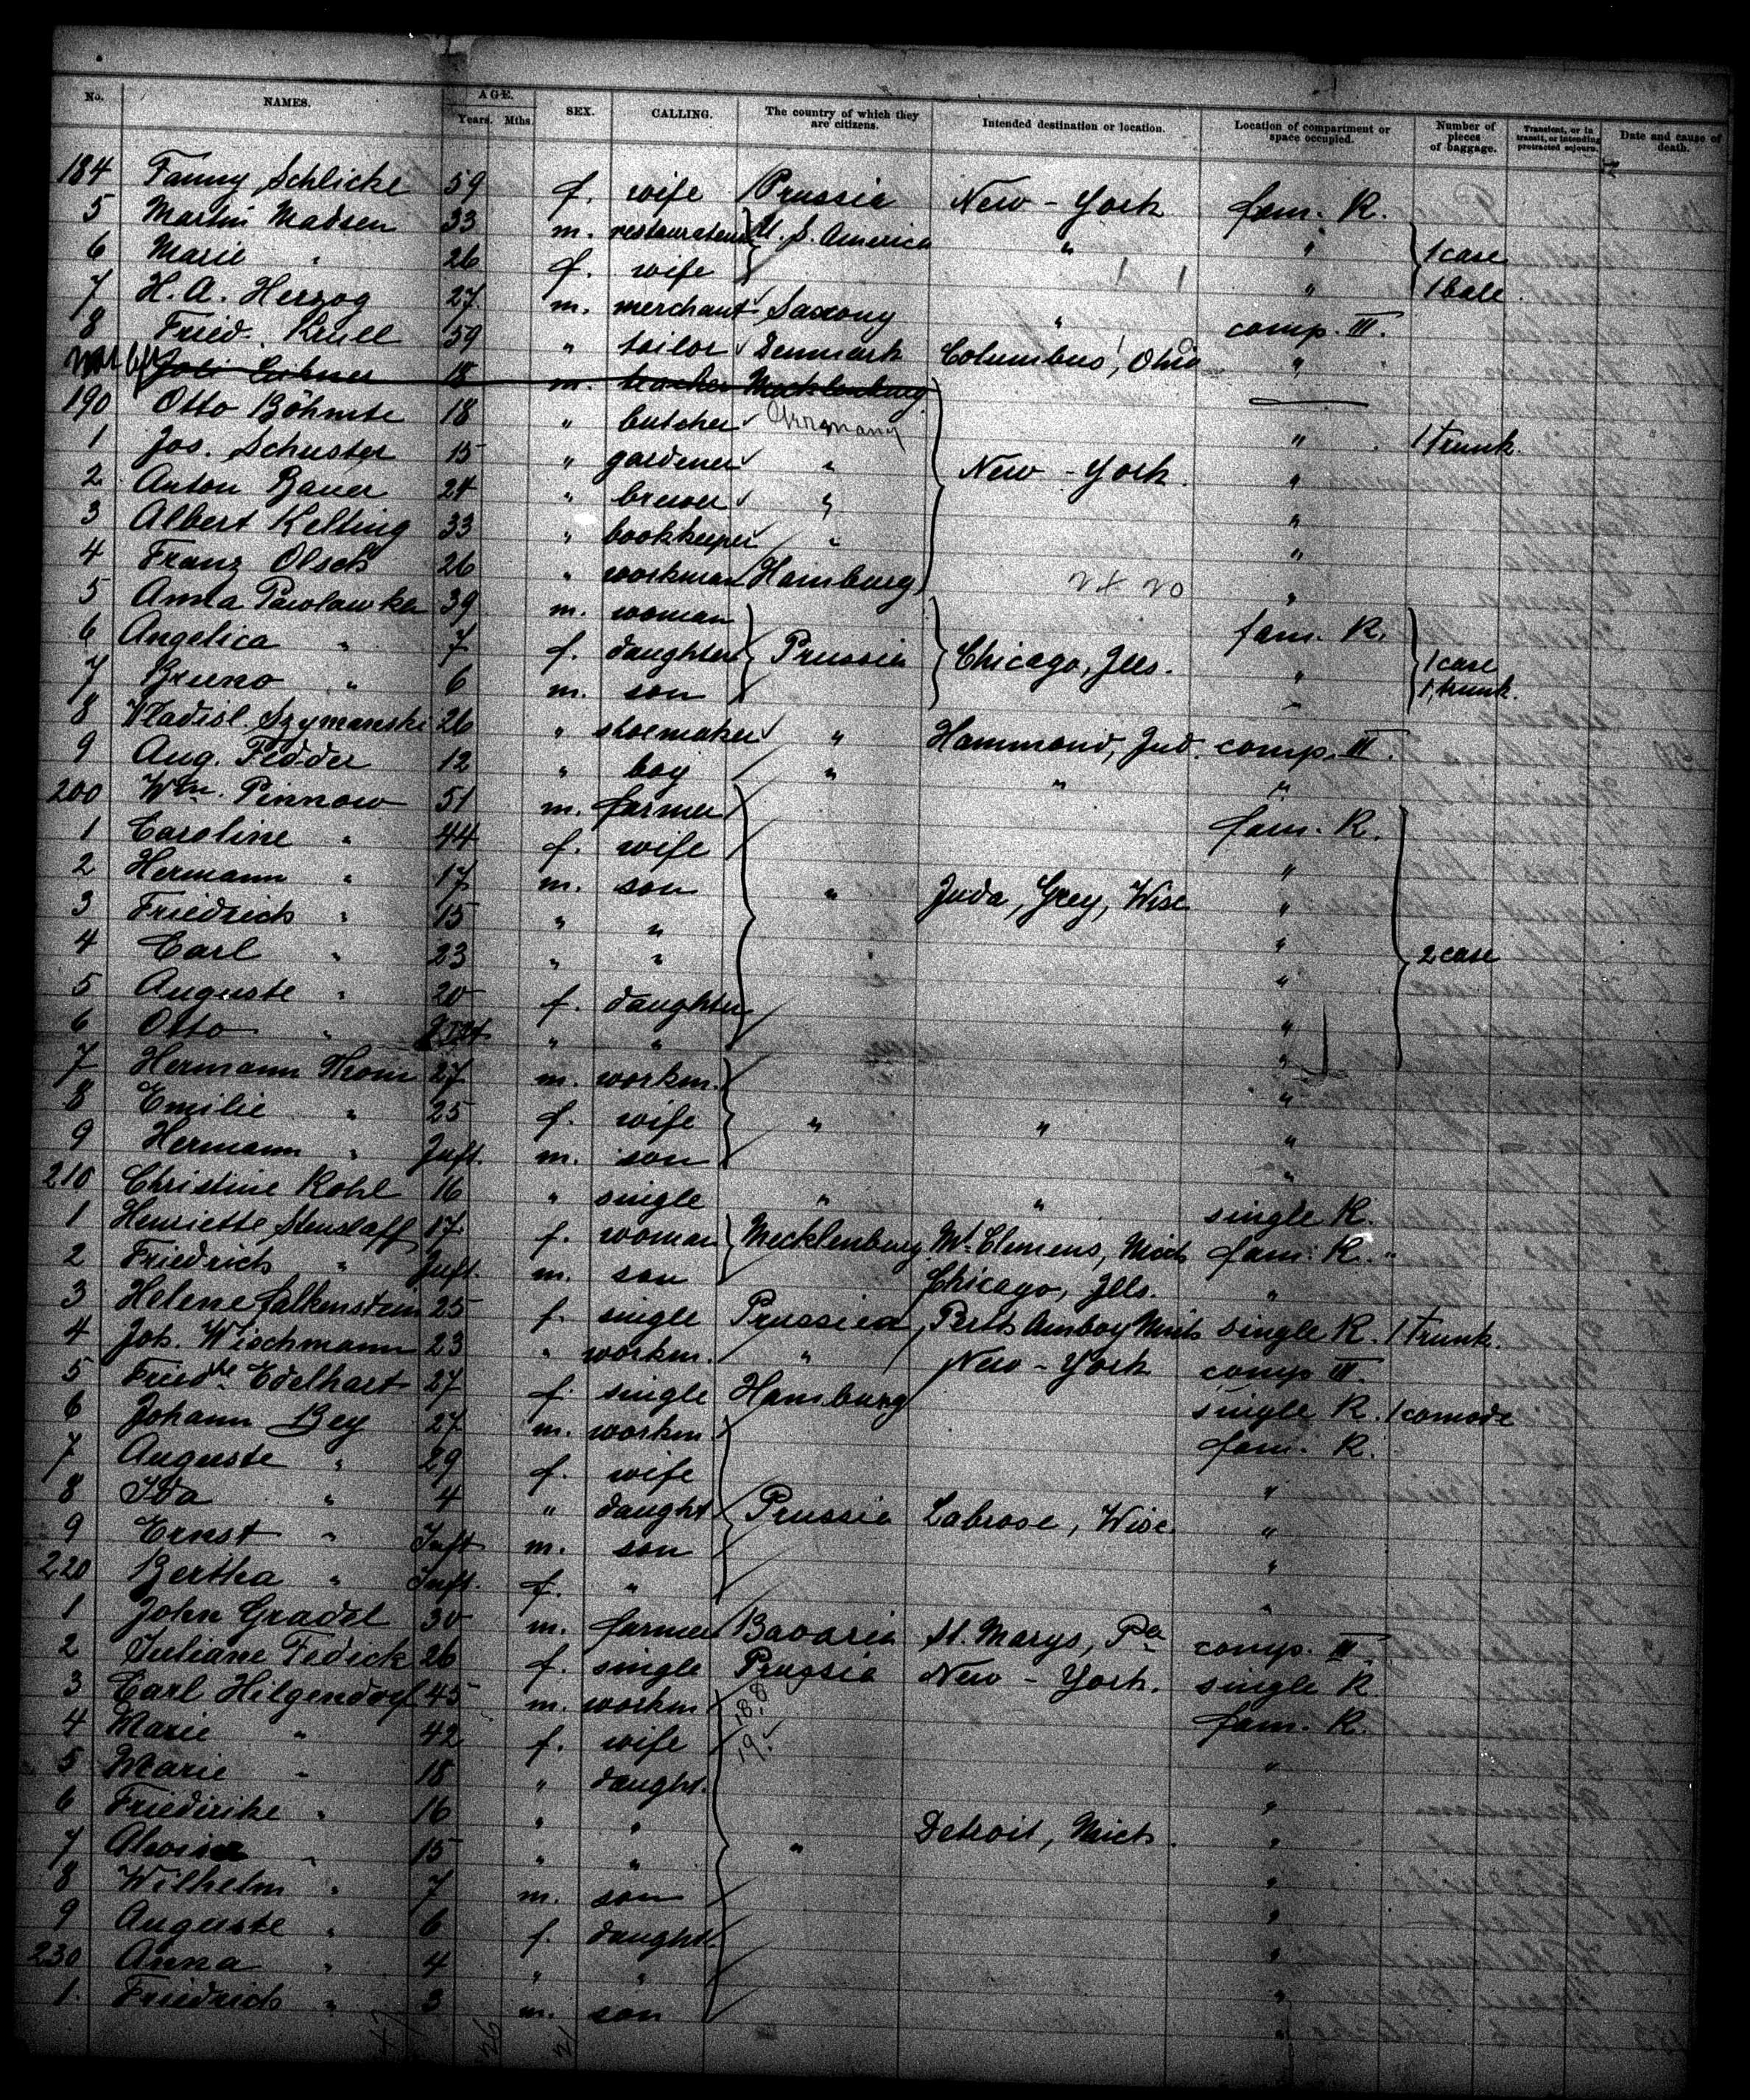 No. NAMES. AGE. Years. Mths. SEX. CALLING. The country of which they are citizens. Intended destination or location. Location of compartment or space occupied. Number of pieces of baggage. Transient, or in transit, or intending protracted sojourn. Date and cause of death.
184 Fanny Schlicke 59 f. wife Prussia New-York fam. R.
5 Martin Madsen 33 m. restaurateur U. S. America " "
6 Marie " 26 f. wife " 1 case 1 bale
7 H. A. Herzog 27 m. merchant Saxony " comp. III.
8 Fried. Krull 59 " tailor Denmark Columbus, Ohio "
18 m. teacher Mecklenburg
190 Otto Böhmte 18 " butcher Germany " 1 trunk.
1 Jos. Schuster 15 " gardener " New-York. "
2 Anton Bauer 24 " brewer " "
3 Albert Kelting 33 " bookkeeper " "
4 Franz Olsch 26 " workman Hamburg "
5 Anna Pawlowka 39 m. woman fam. R.
6 Angelica " 7 f. daughter Prussia Chicago, Ills. " 1 case
7 Bruno " 6 m. son " 1 trunk.
8 Vladisl. Szymanski 26 " shoemaker " Hammond, Ind. comp. III.
9 Aug. Fedder 12 " boy " " "
200 Wm. Pinnow 51 m. farmer fam. R.
1 Caroline " 44 f. wife "
2 Hermann " 17 m. son " Juda, Grey, Wisc "
3 Friedrich " 15 " " "
4 Carl " 23 " " " 2 case
5 Auguste " 20 f. daughter "
6 Otto " " " "
7 Hermann Thom 27 m. workm. "
8 Emilie " 25 f. wife " " "
9 Hermann " Inft. m. son "
210 Christine Kohl 16 " single " " single R.
1 Henriette Stenslaff 17 f. woman Mecklenburg Mt. Clemens, Mich fam. R. "
2 Friedrich " Inft. m. son Chicago, Ills. "
3 Helene Falkenstein 25 f. single Prussia Perth Amboy Mich single R. 1 trunk.
4 Joh. Wischmann 23 " workm. " New-York comp III.
5 Friedke Edelhart 27 f. single Hamburg single R. 1 comode
6 Johann Bey 27 m. workm. fam. R.
7 Auguste " 29 f. wife "
8 Ida " 4 " daught Prussia Labrose, Wisc. "
9 Ernst " Inft m. son "
220 Bertha " Inft. f. " "
1 John Gradel 30 m. farmer Bavaria St. Marys, Pa comp. III.
2 Juliane Fedick 26 f. single Prussia New-York. single R
3 Carl Hilgendorf 45 m. workm fam. R.
4 Marie " 42 f. wife "
5 Marie " 18 " daught. "
6 Friederike " 16 " " Detroit, Mich. "
7 " 15 " " " "
8 Wilhelm " 7 m. son "
9 Auguste " 6 f. daught. "
230 Anna " 4 " " "
1. Friedrich " 3 m. son "